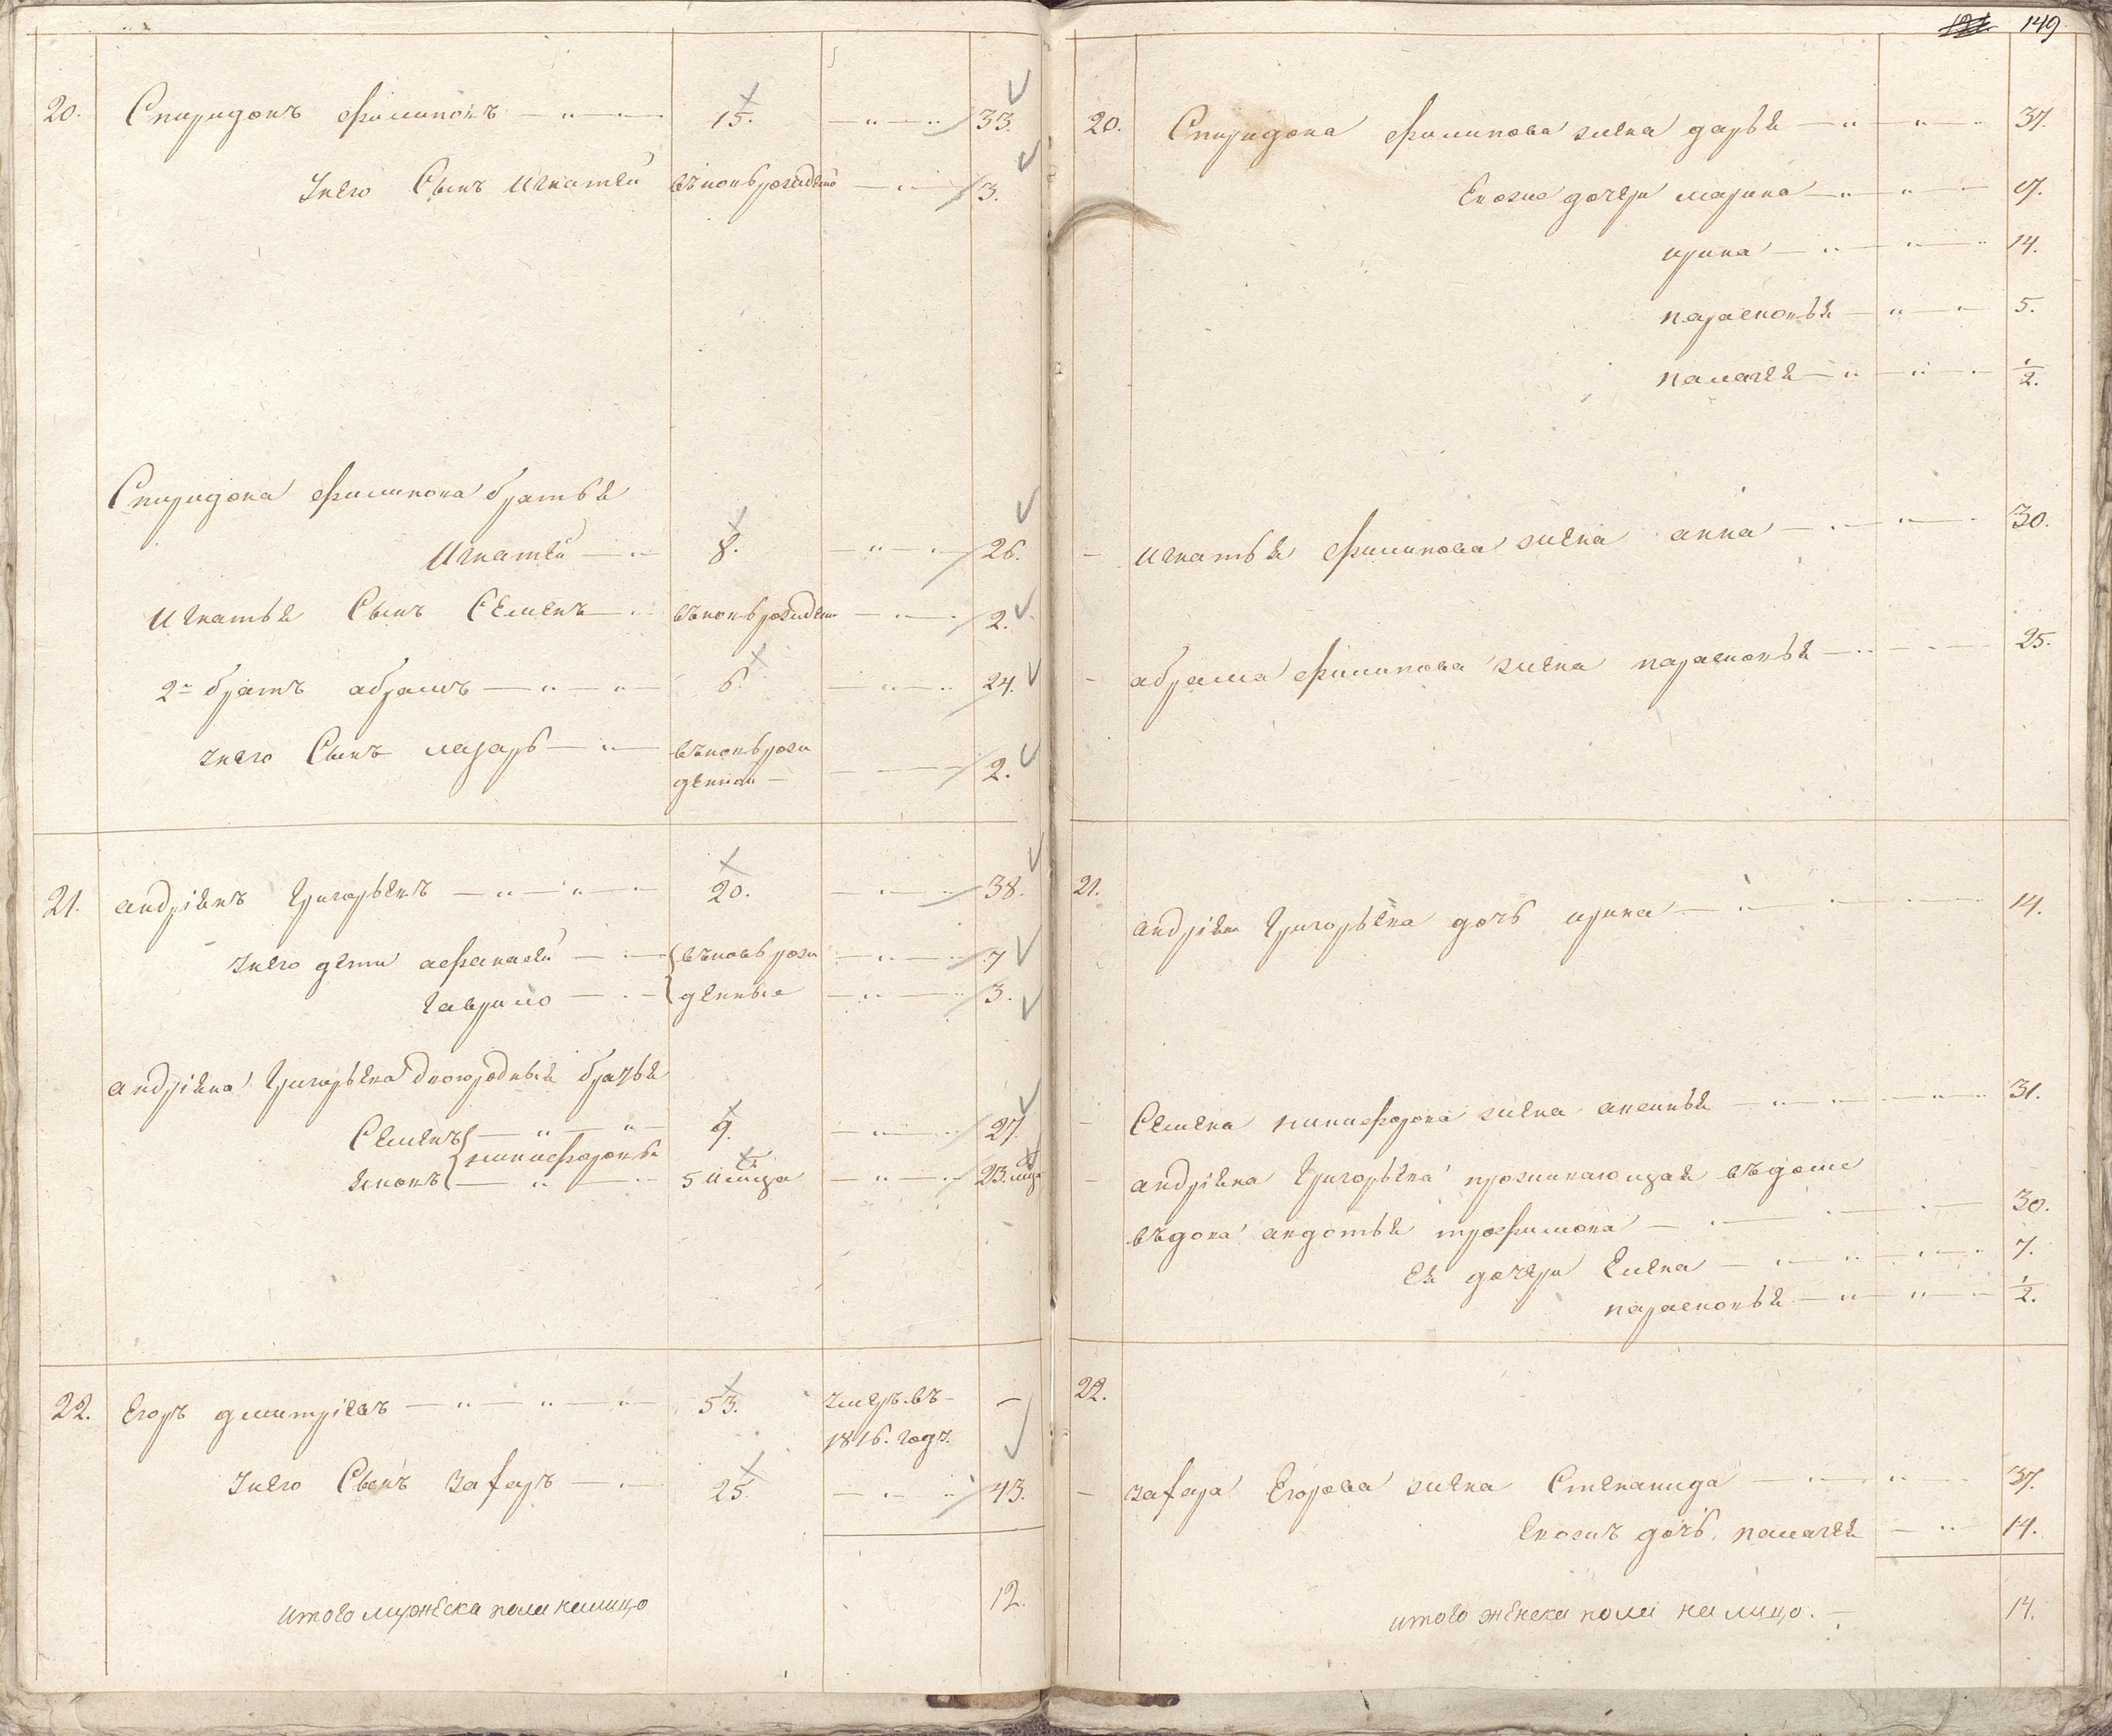 20. Спиридонъ Филиповъ 15. 33.
Унего Сынъ Игнатей вновьрожденой 3.
Спиридона Филипова братья
Игнатей 8. 26.
Игнатья Сынъ Семенъ вновьрожден 2.
2й братъ абрамъ 6. 24.
Унего Сынъ лазарь вновьрож
денной 2.
21. андріянъ Григорьевъ 20. 38.
Унего дети афанасей вновь рож 7
Гаврило денные 3.
андріяна Григорьева двоюродныя братья
Семенъ 9. 27
никифоровы
Яковъ 5 23.
22. Егоръ дмитріевъ 53. умеръ въ —
1816. году.
Унего Сынъ захаръ 25. 43.
итого мужеска пола налицо 12.
121 149
20. Спиридона Филипова жена дарья 37.
Евоже дочери марина 17.
ирина 14.
парасковья 5.
палагея 1/2.
— Игнатья Филипова жена анна 30.
— абрама Филипова жена парасковья 25.
21.
андріяна Григорьева дочь ирина 14.
— Семена никифорова жена аксинья 31.
— андріяна Григорьева проживающая въдоме
въдова авдотья трофимова 30.
Ея дочери Елена 7.
парасковья 1/2.
22.
— захара Егорова жена Степанида 37.
Евожъ дочь палагея 14.
итого женска пола на лицо. 14.